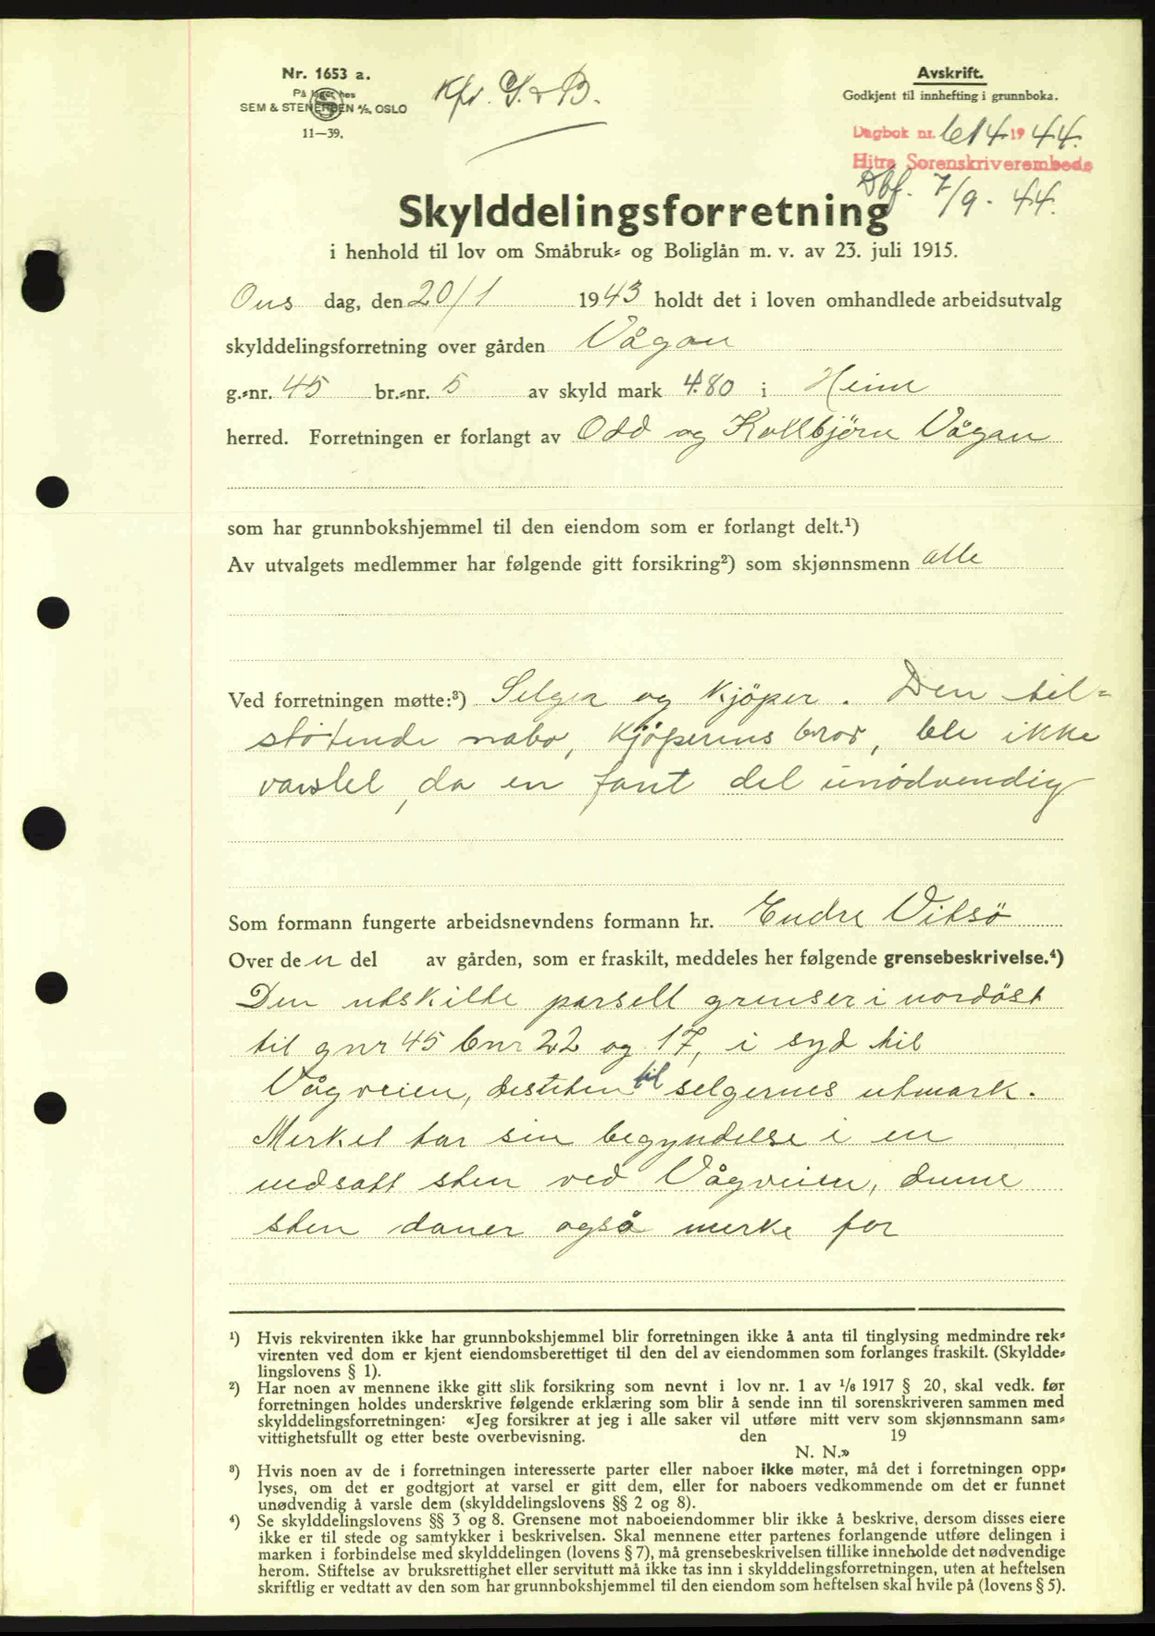 Nr. 1653 a.
På lager hos
SEM & STENERSEN A/S, OSLO
11—39.
Kfr. G. & B.
Avskrift.
Godkjent til innhefting i grunnboka.
Dagbok nr. 614 1944.
Hitra Sorenskriverembede
Dbf. 7/9 - 44.
Skylddelingsforretning
i henhold til lov om Småbruk= og Boliglån m. v. av 23. juli 1915.
Ons dag, den 20/1 1943 holdt det i loven omhandlede arbeidsutvalg
skylddelingsforretning over gården Vågan
g.=nr. 45 br.=nr. 5 av skyld mark 4.80 i Heim
herred. Forretningen er forlangt av Odd og Kolbjørn Vågan
som har grunnbokshjemmel til den eiendom som er forlangt delt.¹)
Av utvalgets medlemmer har følgende gitt forsikring²) som skjønnsmenn alle
Ved forretningen møtte:³) Selger og Kjöper. Den til=
støtende nabo, Kjöperens bror, ble ikke
varslet, da en fant det unödvendig
Som formann fungerte arbeidsnevndens formann hr. Endre Vitsö
Over den del av gården, som er fraskilt, meddeles her følgende grensebeskrivelse.⁴)
Den utskilte parsell grenser i nordöst
til gnr 45 bnr 22 og 17, i syd til
Vågveien, desuten til selgernes utmark.
Merket tar sin begyndelse i en
nedsatt sten ved Vågveien, denne
sten daner også merke for
¹) Hvis rekvirenten ikke har grunnbokshjemmel blir forretningen ikke å anta til tinglysing medmindre rek=
virenten ved dom er kjent eiendomsberettiget til den del av eiendommen som forlanges fraskilt. (Skyldde=
lingslovens § 1).
²) Har noen av mennene ikke gitt slik forsikring som nevnt i lov nr. 1 av 1/6 1917 § 20, skal vedk. før
forretningen holdes underskrive følgende erklæring som blir å sende inn til sorenskriveren sammen med
skylddelingsforretningen: «Jeg forsikrer at jeg i alle saker vil utføre mitt verv som skjønnsmann sam=
vittighetsfullt og etter beste overbevisning. den 19
N. N.»
³) Hvis noen av de i forretningen interesserte parter eller naboer ikke møter, må det i forretningen opp=
lyses, om det er godtgjort at varsel er gitt dem, eller for naboers vedkommende om det er funnet
unødvendig å varsle dem (skylddelingslovens §§ 2 og 8).
⁴) Se skylddelingslovens §§ 3 og 8. Grensene mot naboeiendommer blir ikke å beskrive, dersom disses eiere
ikke er til stede og samtykker i beskrivelsen. Skal mennene etter partenes forlangende utføre delingen i
marken i forbindelse med skylddelingen (lovens § 7), må grensebeskrivelsen tillike inneholde det nødvendige
herom. Stiftelse av bruksrettighet eller servitutt må ikke tas inn i skylddelingsforretningen, uten at heftelsen
skriftlig er vedtatt av den som har grunnbokshjemmel til den eiendom som heftelsen skal hvile på (lovens § 5).